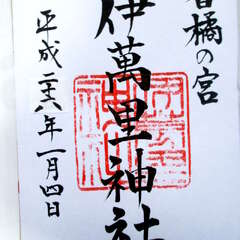 香橘の宮
伊萬里神社
平成二十六年一月四日